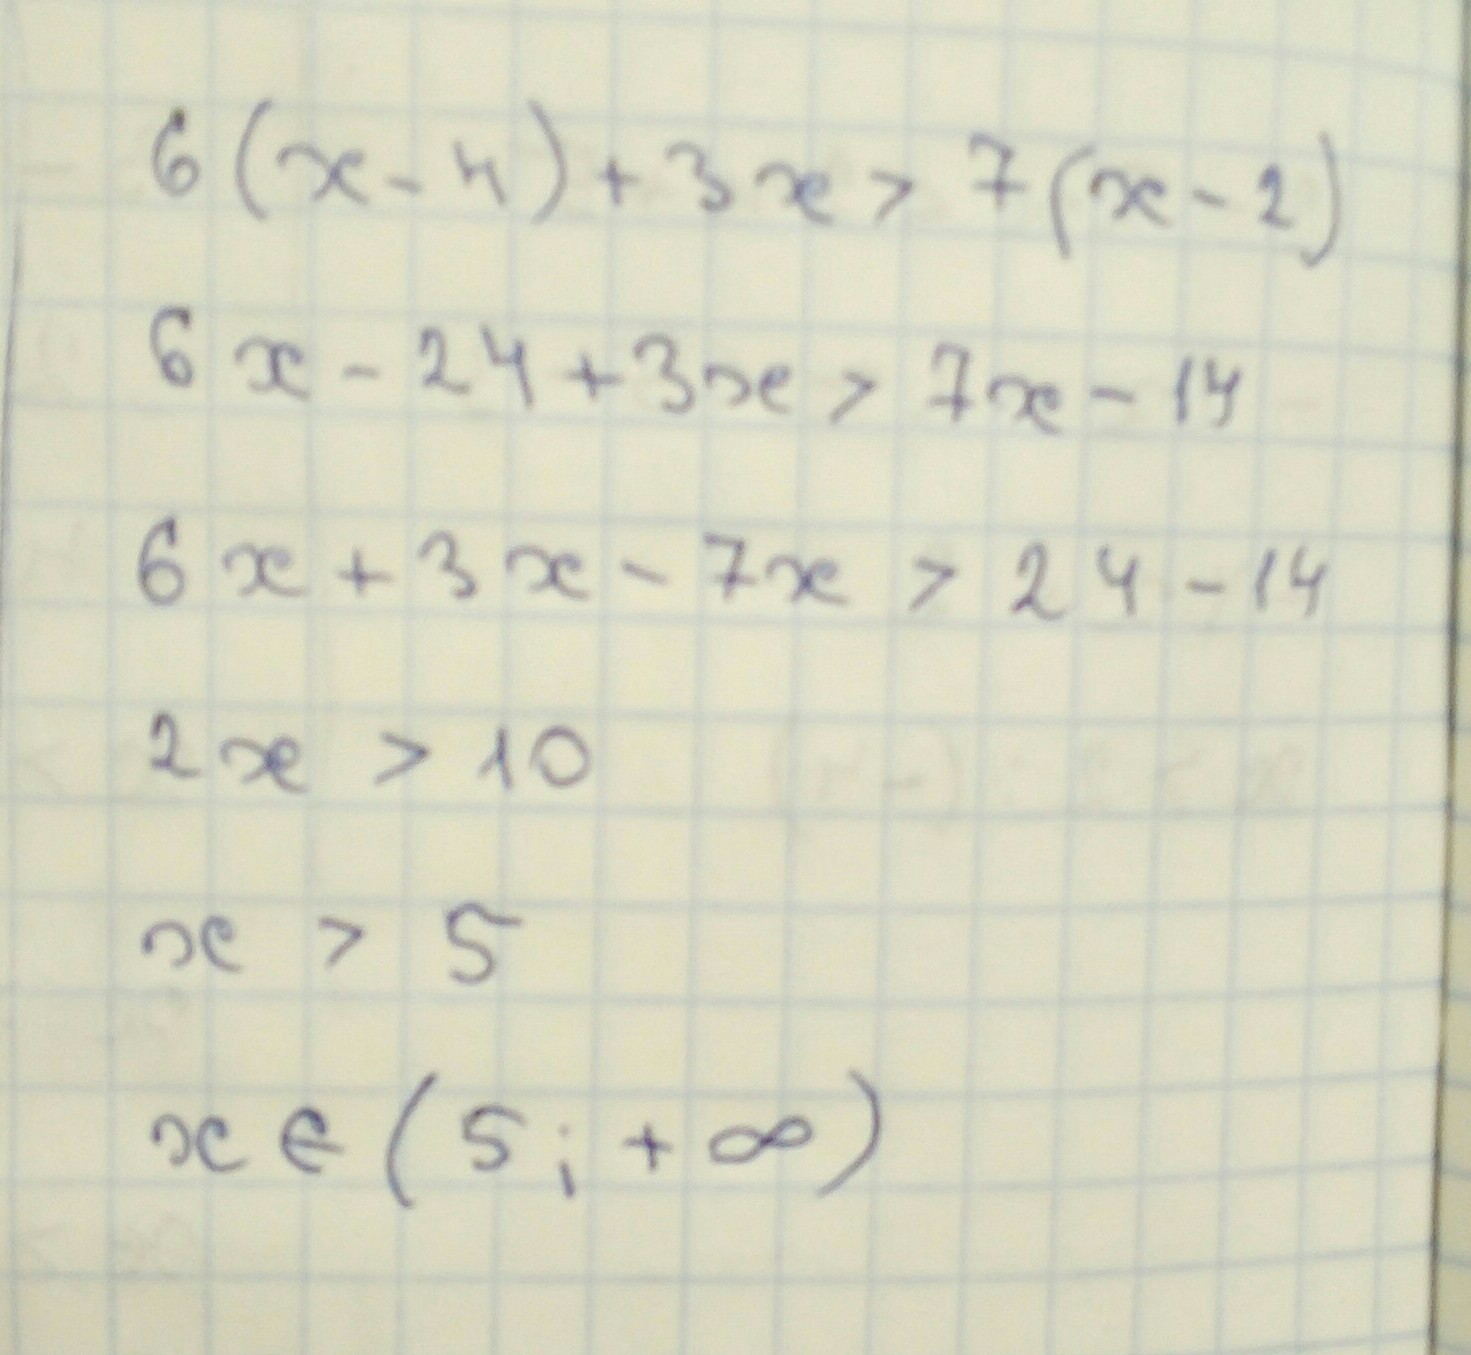 6(x-4)+3x>7(x-2)
6x-24+3x>7x-14
6x+3x-7x>24-14
2x>10
x>5
x∈(5;+∞)